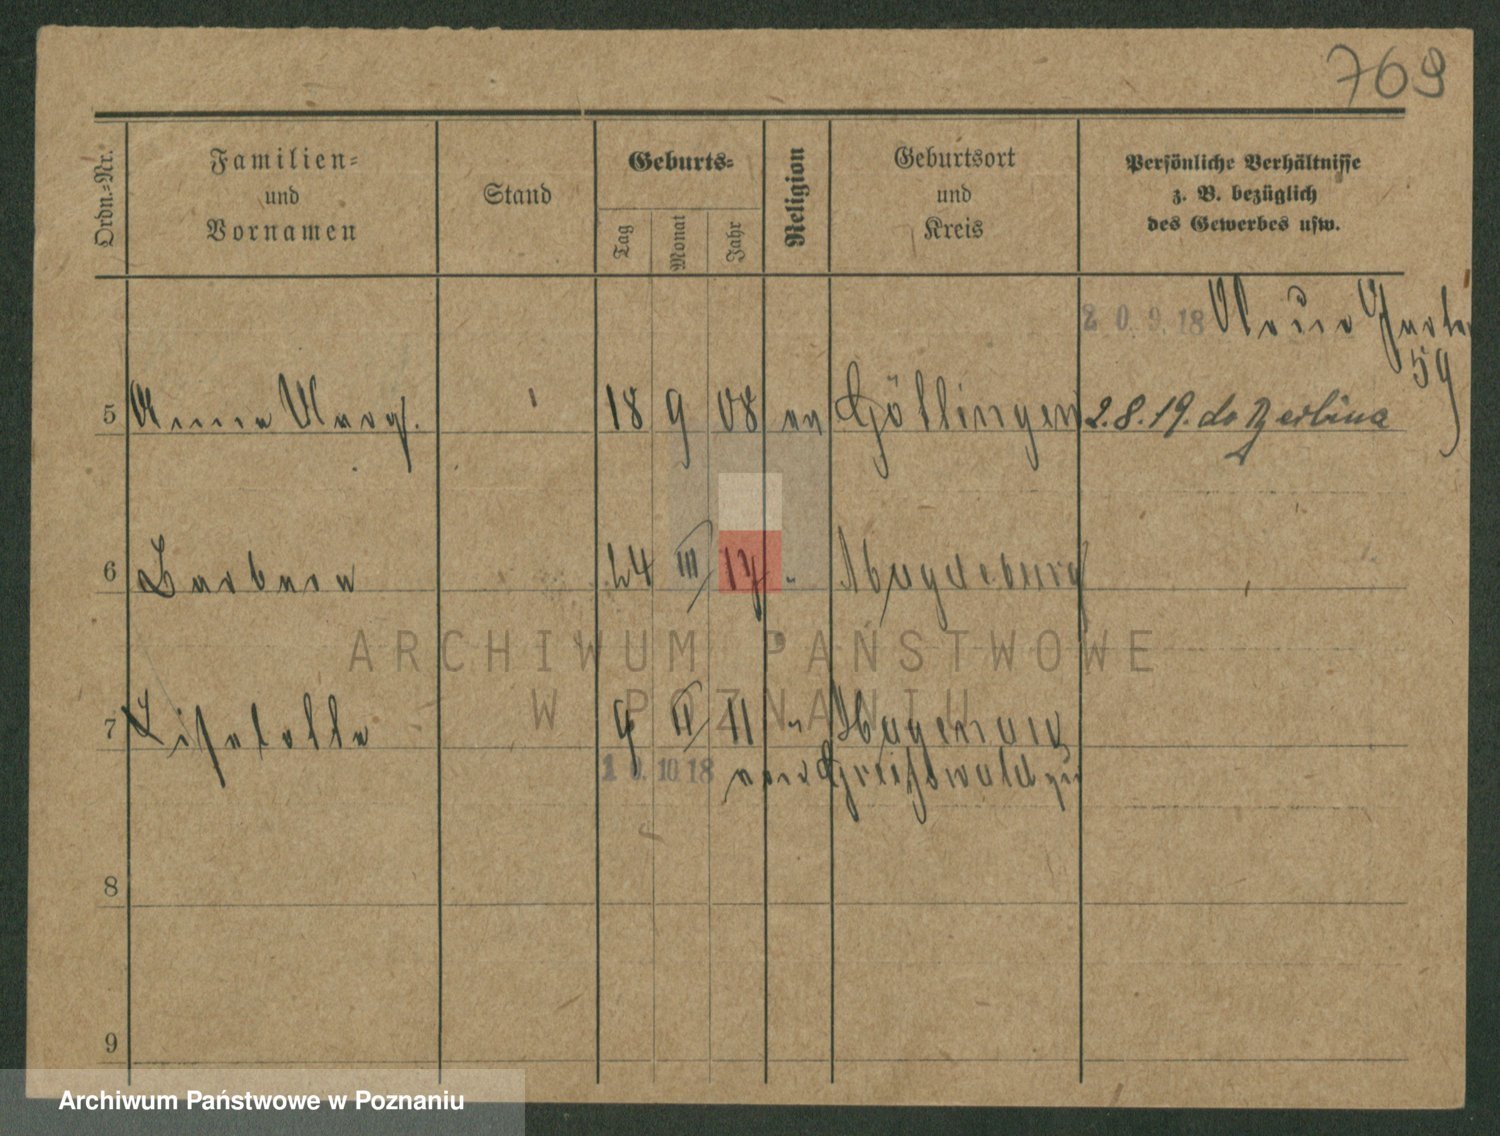 769
Ordn.-Nr.
Familien-
und
Vornamen
Stand
Geburts-
Tag
Monat
Jahr
Religion
Geburtsort
und
Kreis
Persönliche Verhältnisse
z. B. bezüglich
des Gewerbes usw.
20.9.18 Neue Garten
59
5 Anna Marg. 18 9 08 ev Göttingen 2.8.19. do
6 Barbara 24 III 17 " Magdeburg
7 Liselotte 9 II 11 " Hagenow
10.10.18 von Greifswald zu
8
9
ARCHIWUM PAŃSTWOWE
W POZNANIU
Archiwum Państwowe w Poznaniu